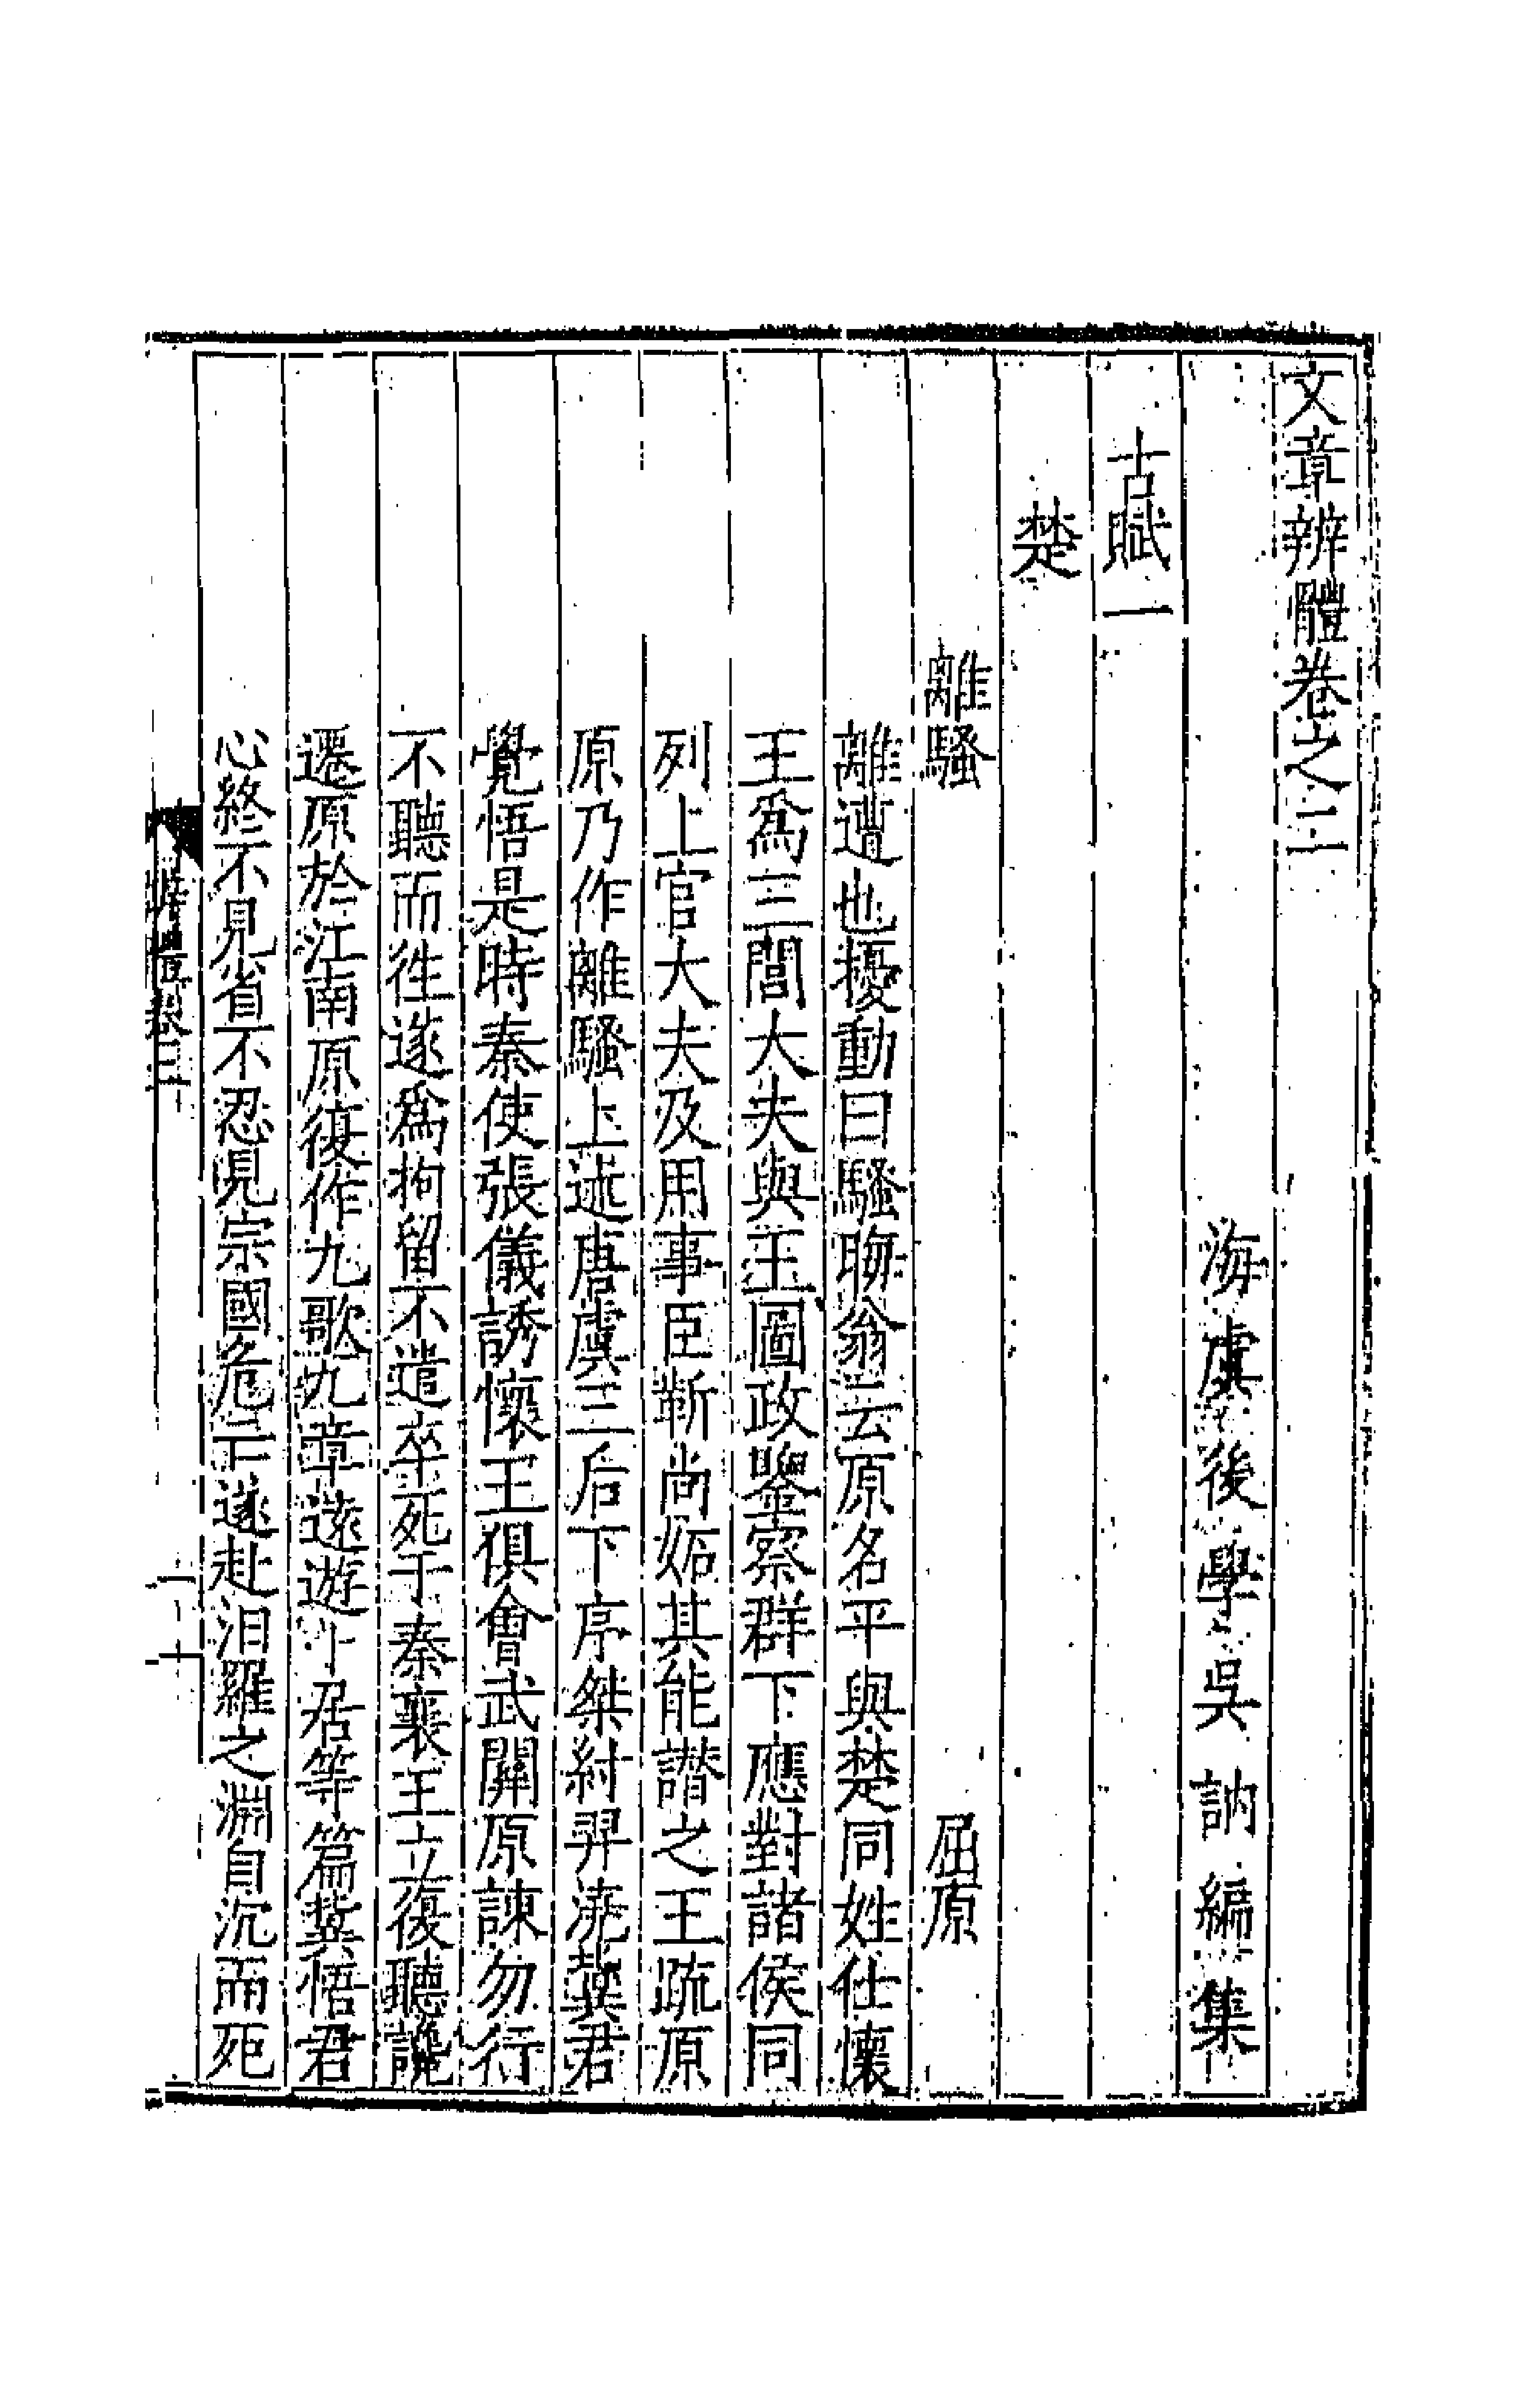 文章辨體卷之二
海虞後學吳訥編集
古賦一
楚
離騷 屈原
離遭也擾動曰騷晦翁云原名平與楚同姓仕懷
王爲三閭大夫與王圖政鑒察群下應對諸侯同
列上官大夫及用事臣靳尚妬其能譖之王疏原
原乃作離騷上述唐虞三后下序桀紂羿澆冀君
覺悟是時秦使張儀誘懷王俱會武關原諫勿行
不聽而徃遂爲拘留不遣卒死于秦襄王立復聽讒
遷原於江南原復作九歌九章遠遊卜居等篇冀悟君
心終不見省不忍見宗國危亡遂赴汨羅之淵自沉而死